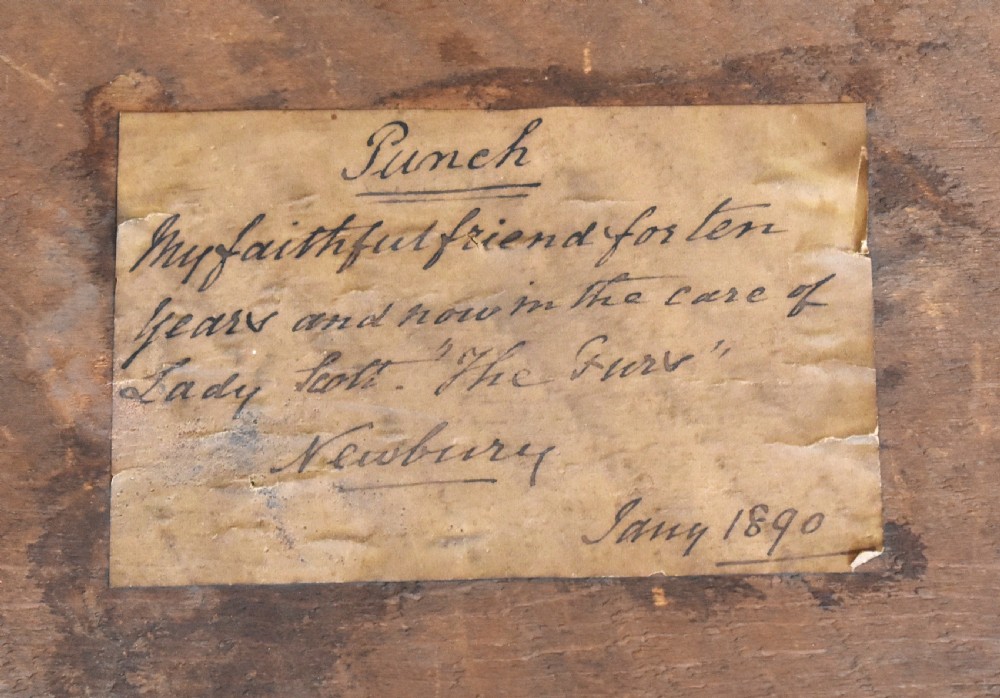 Punch
My faithful friend for ten
years and now in the care of
Lady Scott. "The Furs"
Newbury
Jany 1890